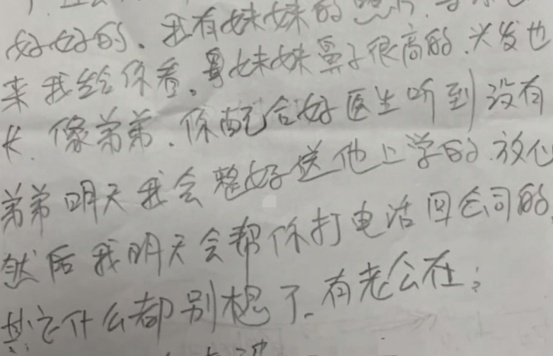 好好的、我有妹妹的
来我给你看,妹妹鼻子很高的.头发也
长.像弟弟.你配合好医生听到没有
弟弟明天我会整好送他上学的.放心
然后我明天会帮你打电话回公司的
其它什么都别想了.有老公在;